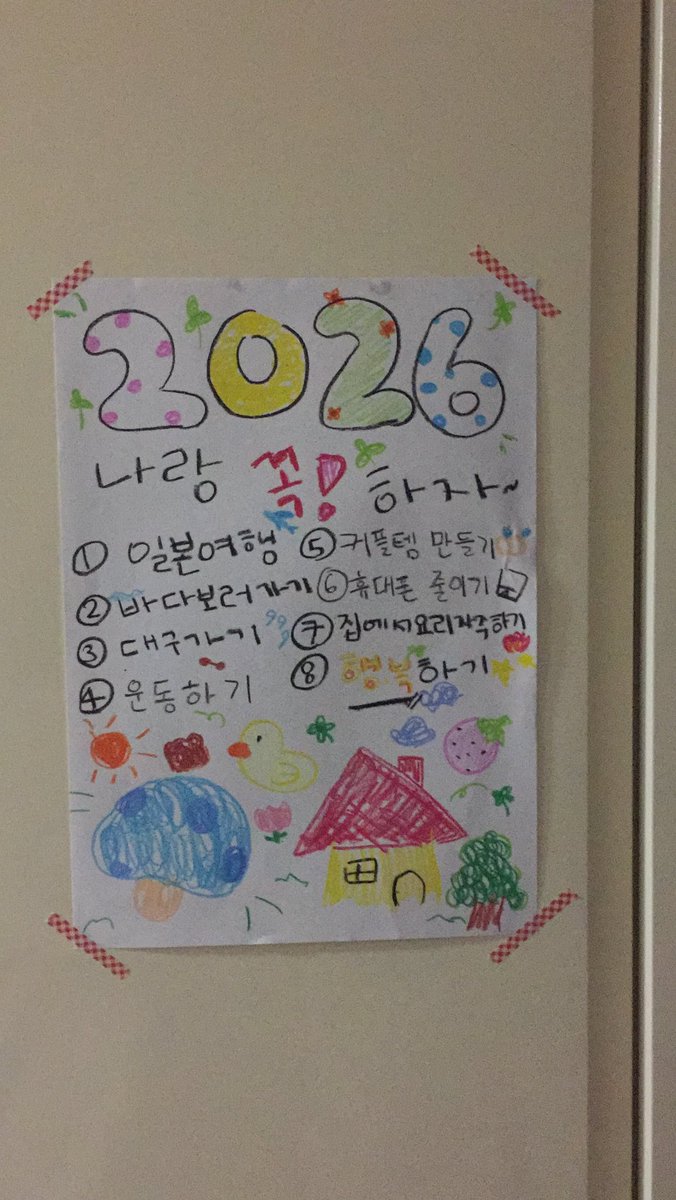 2026
나랑 꼭! 하자~
① 일본여행
② 바다보러가기
③ 대구가기
④ 운동하기
⑤ 커플템 만들기
⑥ 휴대폰 줄이기
⑦ 집에서요리자주하기
⑧ 행복하기